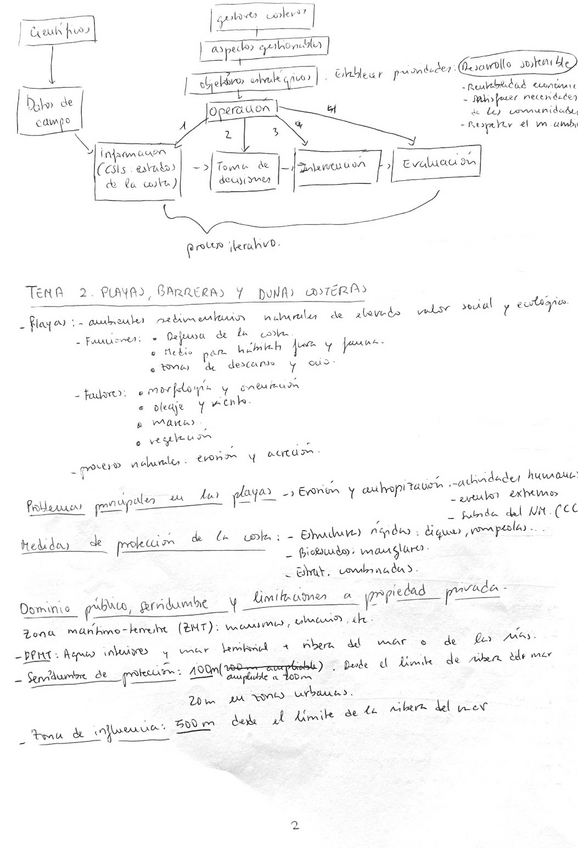 gestores costeros
científicos
aspectos gestionables
objetivos estratégicos. Establecer prioridades: Desarrollo sostenible
- Rentabilidad económic
- Satisfacer necesidades
de las comunidades
- Respetar el m. ambi
Datos de
campo
Operación
1 2 3 4
Información
(CSIs. estados
de la costa)
Toma de
decisiones
Intervención
Evaluación
proceso iterativo.
TEMA 2. PLAYAS, BARRERAS Y DUNAS COSTERAS
- Playas: - ambientes sedimentarios naturales de elevado valor social y ecológico.
- Funciones: • Defensa de la costa.
• Medio para hábitats flora y fauna.
• zonas de descanso y ocio.
- Factores: • morfología y orientación
• oleaje y viento.
• mareas.
• vegetación
- procesos naturales: erosión y acreción.
Problemas principales en las playas -> Erosión y antropización: - actividades humanas
- eventos extremos
- Subida del NM. (CC
Medidas de protección de la costa: - Estructuras rígidas: diques, rompeolas...
- Bioescudos: manglares.
- Estrat. combinadas.
Dominio público, servidumbre y limitaciones a propiedad privada.
Zona marítimo-terrestre (ZMT): marismas, estuarios, etc.
- DPMT: Aguas interiores y mar territorial + ribera del mar o de las rías.
- Servidumbre de protección: 100m (200 m ampliable). Desde el límite de ribera del mar
ampliable a 200m
20m en zonas urbanas.
- Zona de influencia: 500m desde el límite de la ribera del mar
2